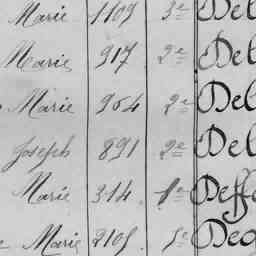 Marie 1109 3e Del
Marie 917 2e Del
Marie 964 2e Del
Joseph 891 2e Del
Marie 314 1e Deff
Marie 2105 5e Deg